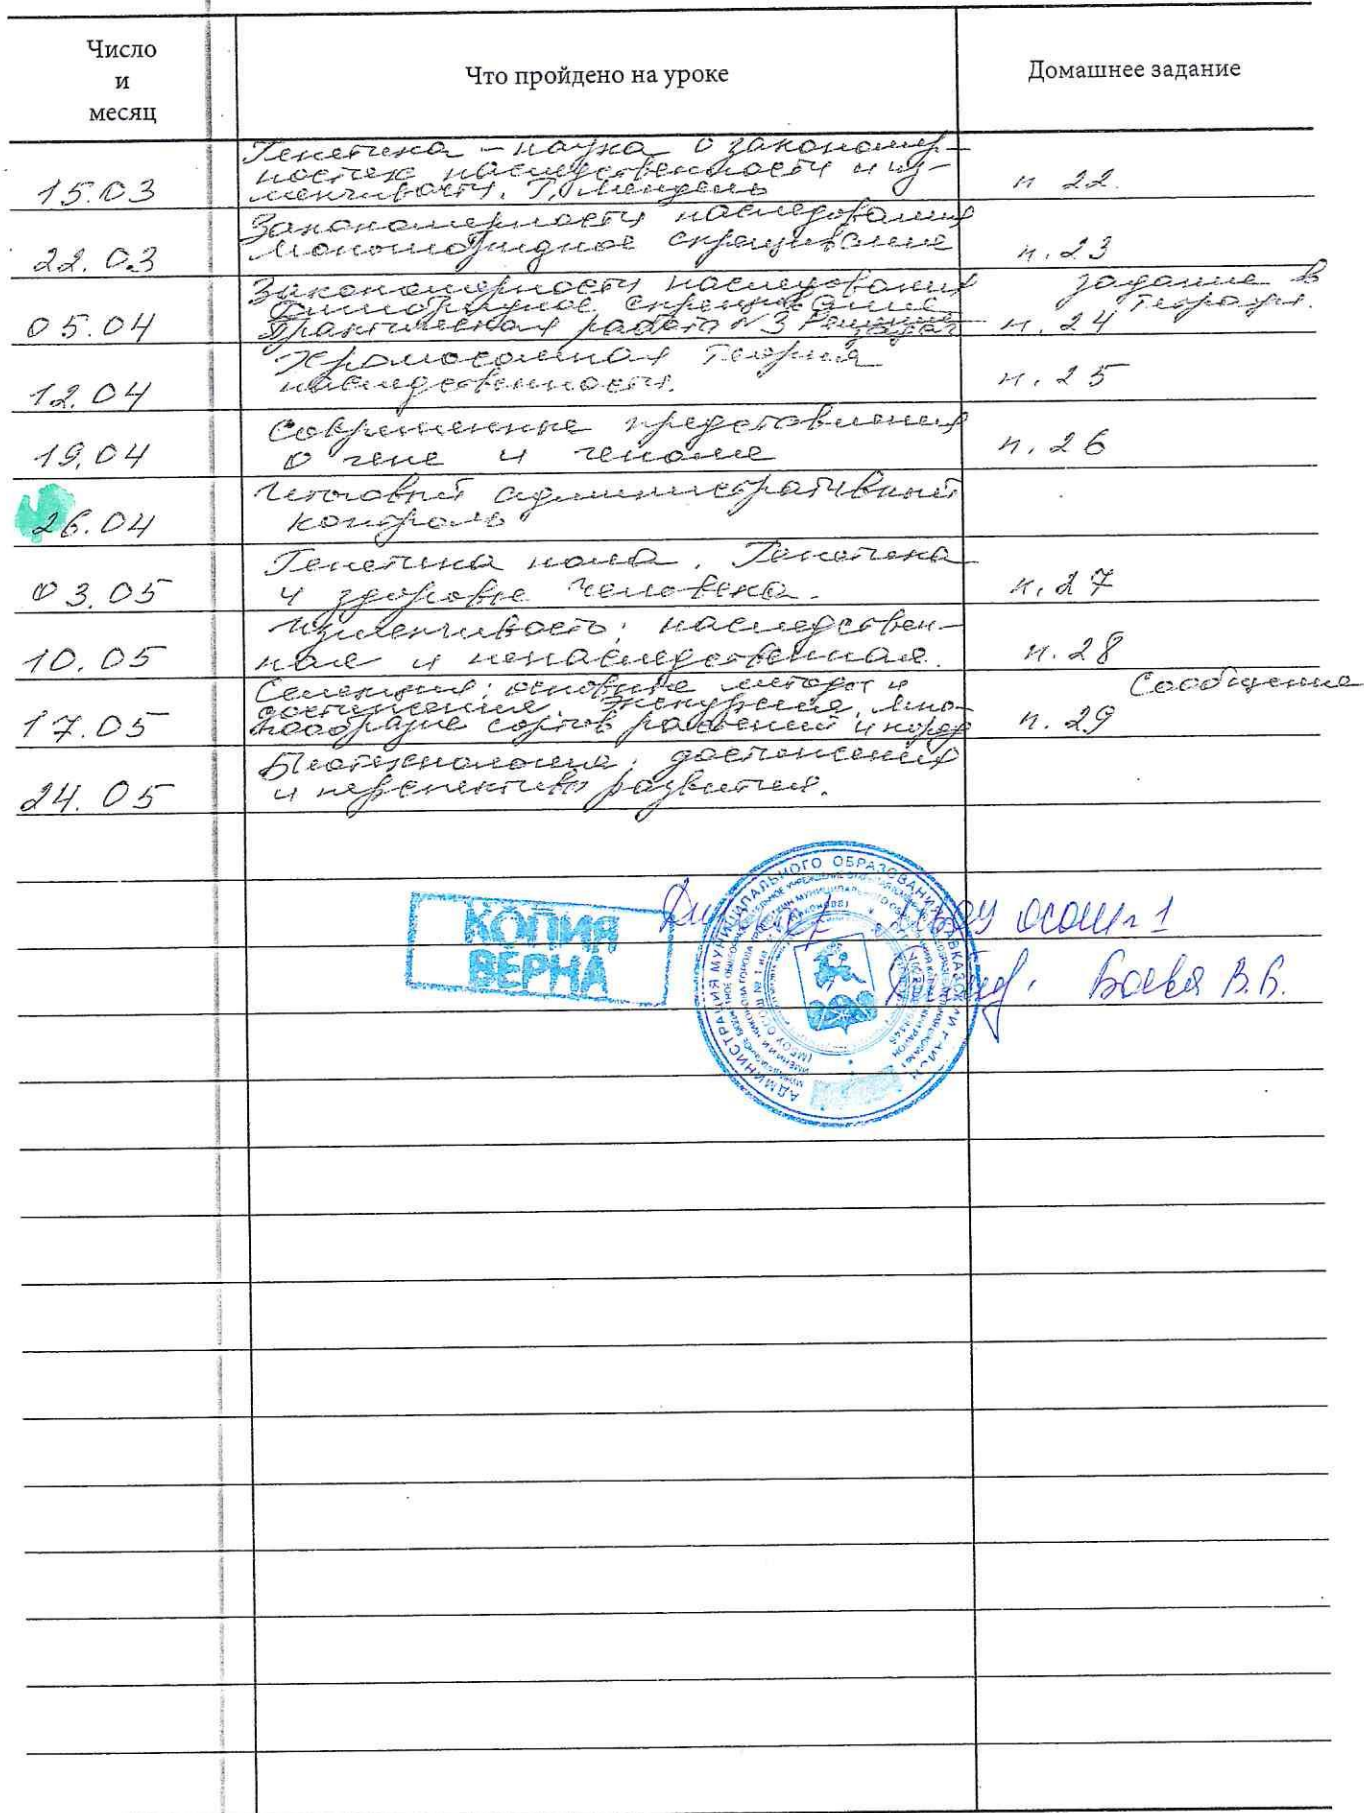 Число
и
месяц
Что пройдено на уроке
Домашнее задание
Генетика – наука о закономер-
ностях наследственности и из-
менчивости. Г. Мендель
15.03
п 22.
Закономерности наследования
Моногибридное скрещивание
22.03
п. 23
Закономерности наследования
Дигибридное скрещивание
Практическая работа №3 Решение
задач
05.04
задание в
тетради.
п. 24
Хромосомная теория
наследственности.
12.04
п. 25
Современные представления
о гене и геноме
19.04
п. 26
Итоговый административный
контроль
26.04
Генетика пола. Генетика
и здоровье человека.
03.05
п. 27
Изменчивость: наследствен-
ная и ненаследственная.
10.05
п. 28
Селекция: основные методы и
достижения. Экскурсия. Мно-
гообразие сортов растений и пород
17.05
Сообщение
п. 29
Биотехнология: достижения
и перспективы развития.
24.05
КОПИЯ
ВЕРНА
Директор МБОУ ОСОШ №1
Боева В.В.
АДМИНИСТРАЦИЯ МУНИЦИПАЛЬНОГО ОБРАЗОВАНИЯ